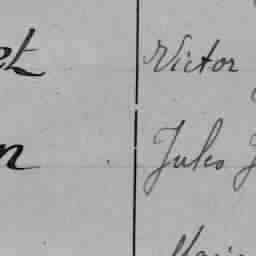 et Victor
n Jules J